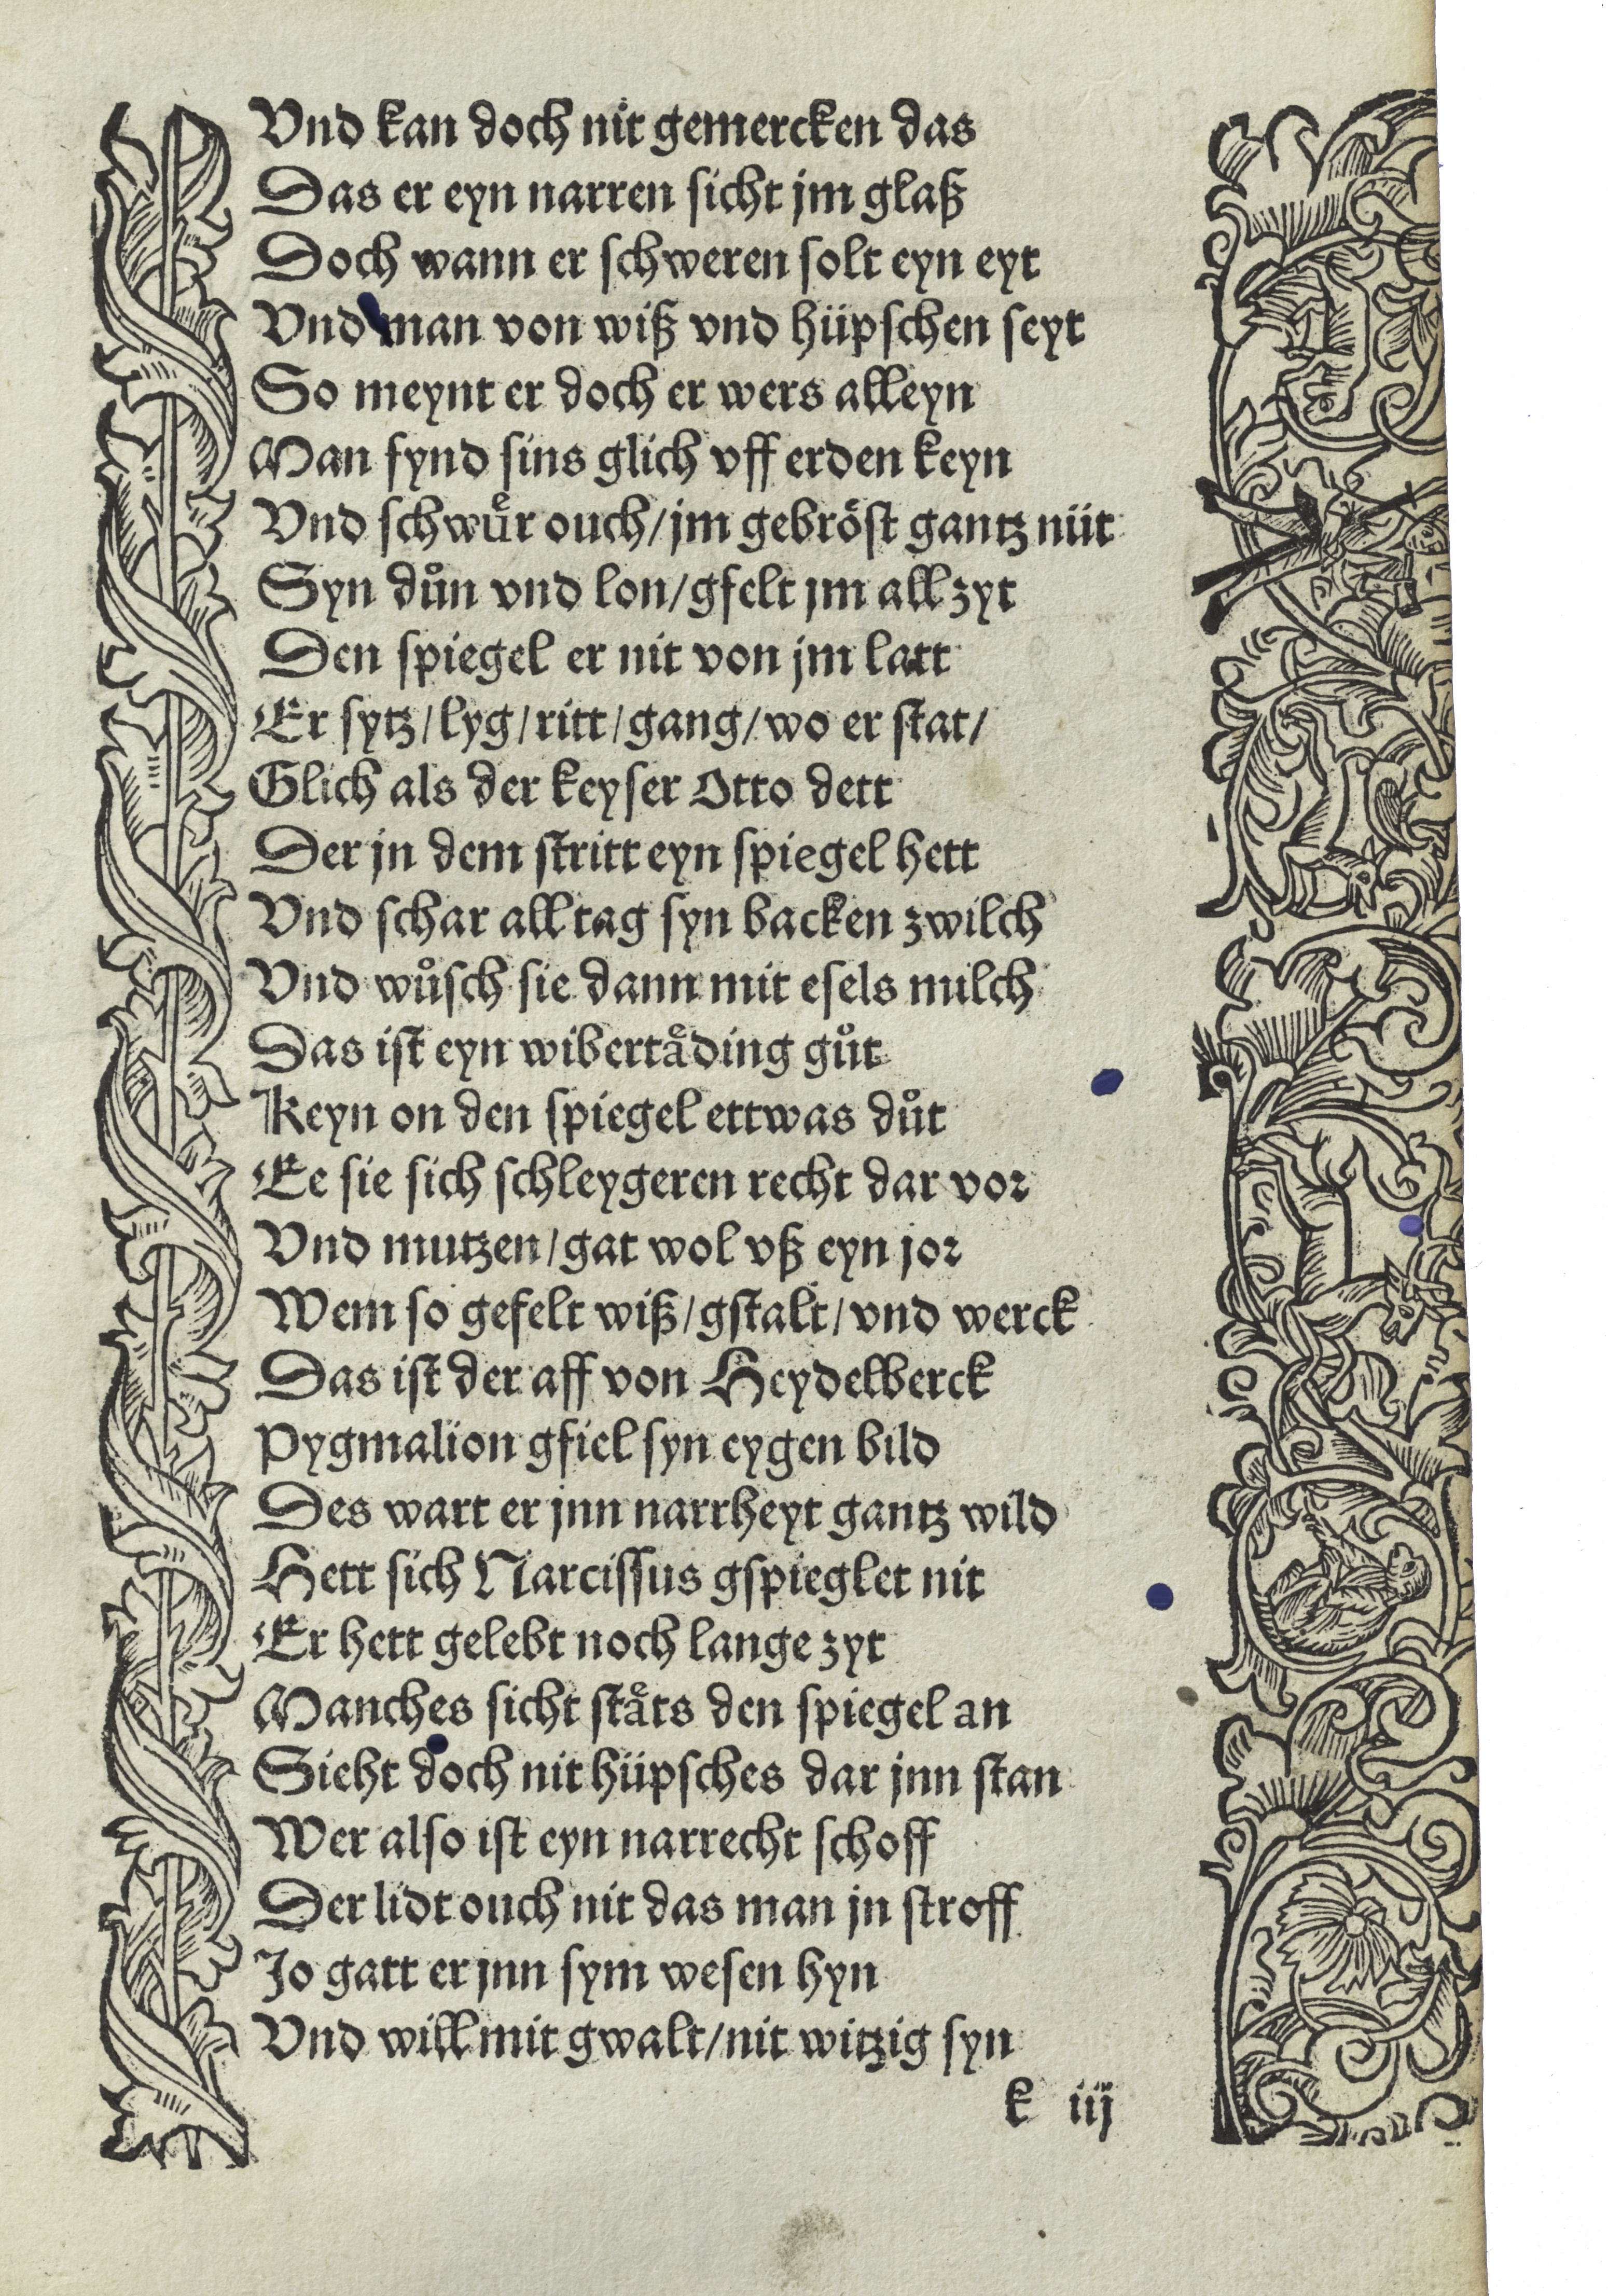 Vnd kan doch nit gemercken das
Das er eyn narren sicht jm glaß
Doch wann er schweren solt eyn eyt
Vnd man von wiß vnd hüpschen seyt
So meynt er doch er wers alleyn
Man fynd sins glich vff erden keyn
Vnd schwuͤr ouch/jm gebröst gantz nüt
Syn duͦn vnd lon/gfelt jm all zyt
Den spiegel er nit von jm latt
Er sytz/lyg/ritt/gang/wo er stat/
Glich als der keyser Otto dett
Der jn dem stritt eyn spiegel hett
Vnd schar all tag syn backen zwilch
Vnd wuͦsch sie dann mit esels milch
Das ist eyn wibertaͤding guͦt
Keyn on den spiegel ettwas duͦt
Ee sie sich schleygeren recht dar vor
Vnd mutzen/gat wol vß eyn jor
Wem so gefelt wiß/gstalt/vnd werck
Das ist der aff von Heydelberck
Pygmalion gfiel syn eygen bild
Des wart er jnn narrheyt gantz wild
Hett sich Narcissus gspieglet nit
Er hett gelebt noch lange zyt
Manches sicht staͤts den spiegel an
Sieht doch nit hüpsches dar jnn stan
Wer also ist eyn narrecht schoff
Der lidt ouch nit das man jn stroff
Jo gatt er jnn sym wesen hyn
Vnd will mit gwalt/nit witzig syn
k iij